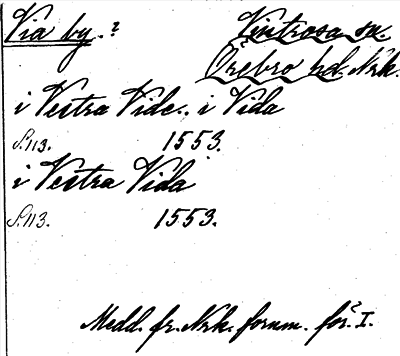 Via by.? Vintrosa sn.
Örebro hd. Nrk.
i Vestra Vide., i Vida
S. 113. 1553.
i Vestra Vida
S. 113. 1553.
Medd. fr. Nrk. fornm. för. I.